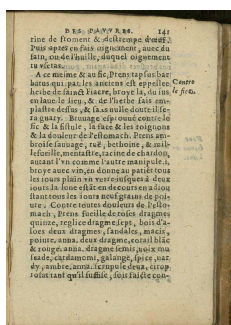 DES PAUVRES. 141
rine de froment & destrempe d'œuf.
Puis apres en fais oignement, auec du
sain, ou de l'huille, duquel oignement
tu vseras.
A ce mesme & au fic, Prens tapsus bar-
batus qui par les anciens est appellee
herbe de sainct Fiacre, broye la, du ius
en laue le lieu, & de l'herbe fais em-
plastre dessus, & sans nulle doute il se-
ra guary. Bruuage esprouué contre le
fic & la fistule, la face & les roignons
& la douleur de l'estomach. Prens am-
broise sauuage, ruë, bethoine, & mil-
lefueille, mentastre, racine de chardon,
autant l'vn comme l'autre manipule i.
broye auec vin, en donne au patiēt tous
les iours plain vn verre iusques à deux
iours
tant tous les iours neuf grains de poi-
ure. Contre toutes douleurs de l'esto-
mach, Prens fueille de roses dragmes
quinze, reglice dragme sept, bois d'a-
loes deux dragmes, sandales, macis,
poiure, anna. deux dragme, corail blāc
& rouge, anna. dragme semis, noix mu
scade, cardamomi, galange, spice, nar-
dy, ambre, anna. scrupule deux, cirop
rosat tant qu'il suffise, soit faicte con-
Contre
le fic.